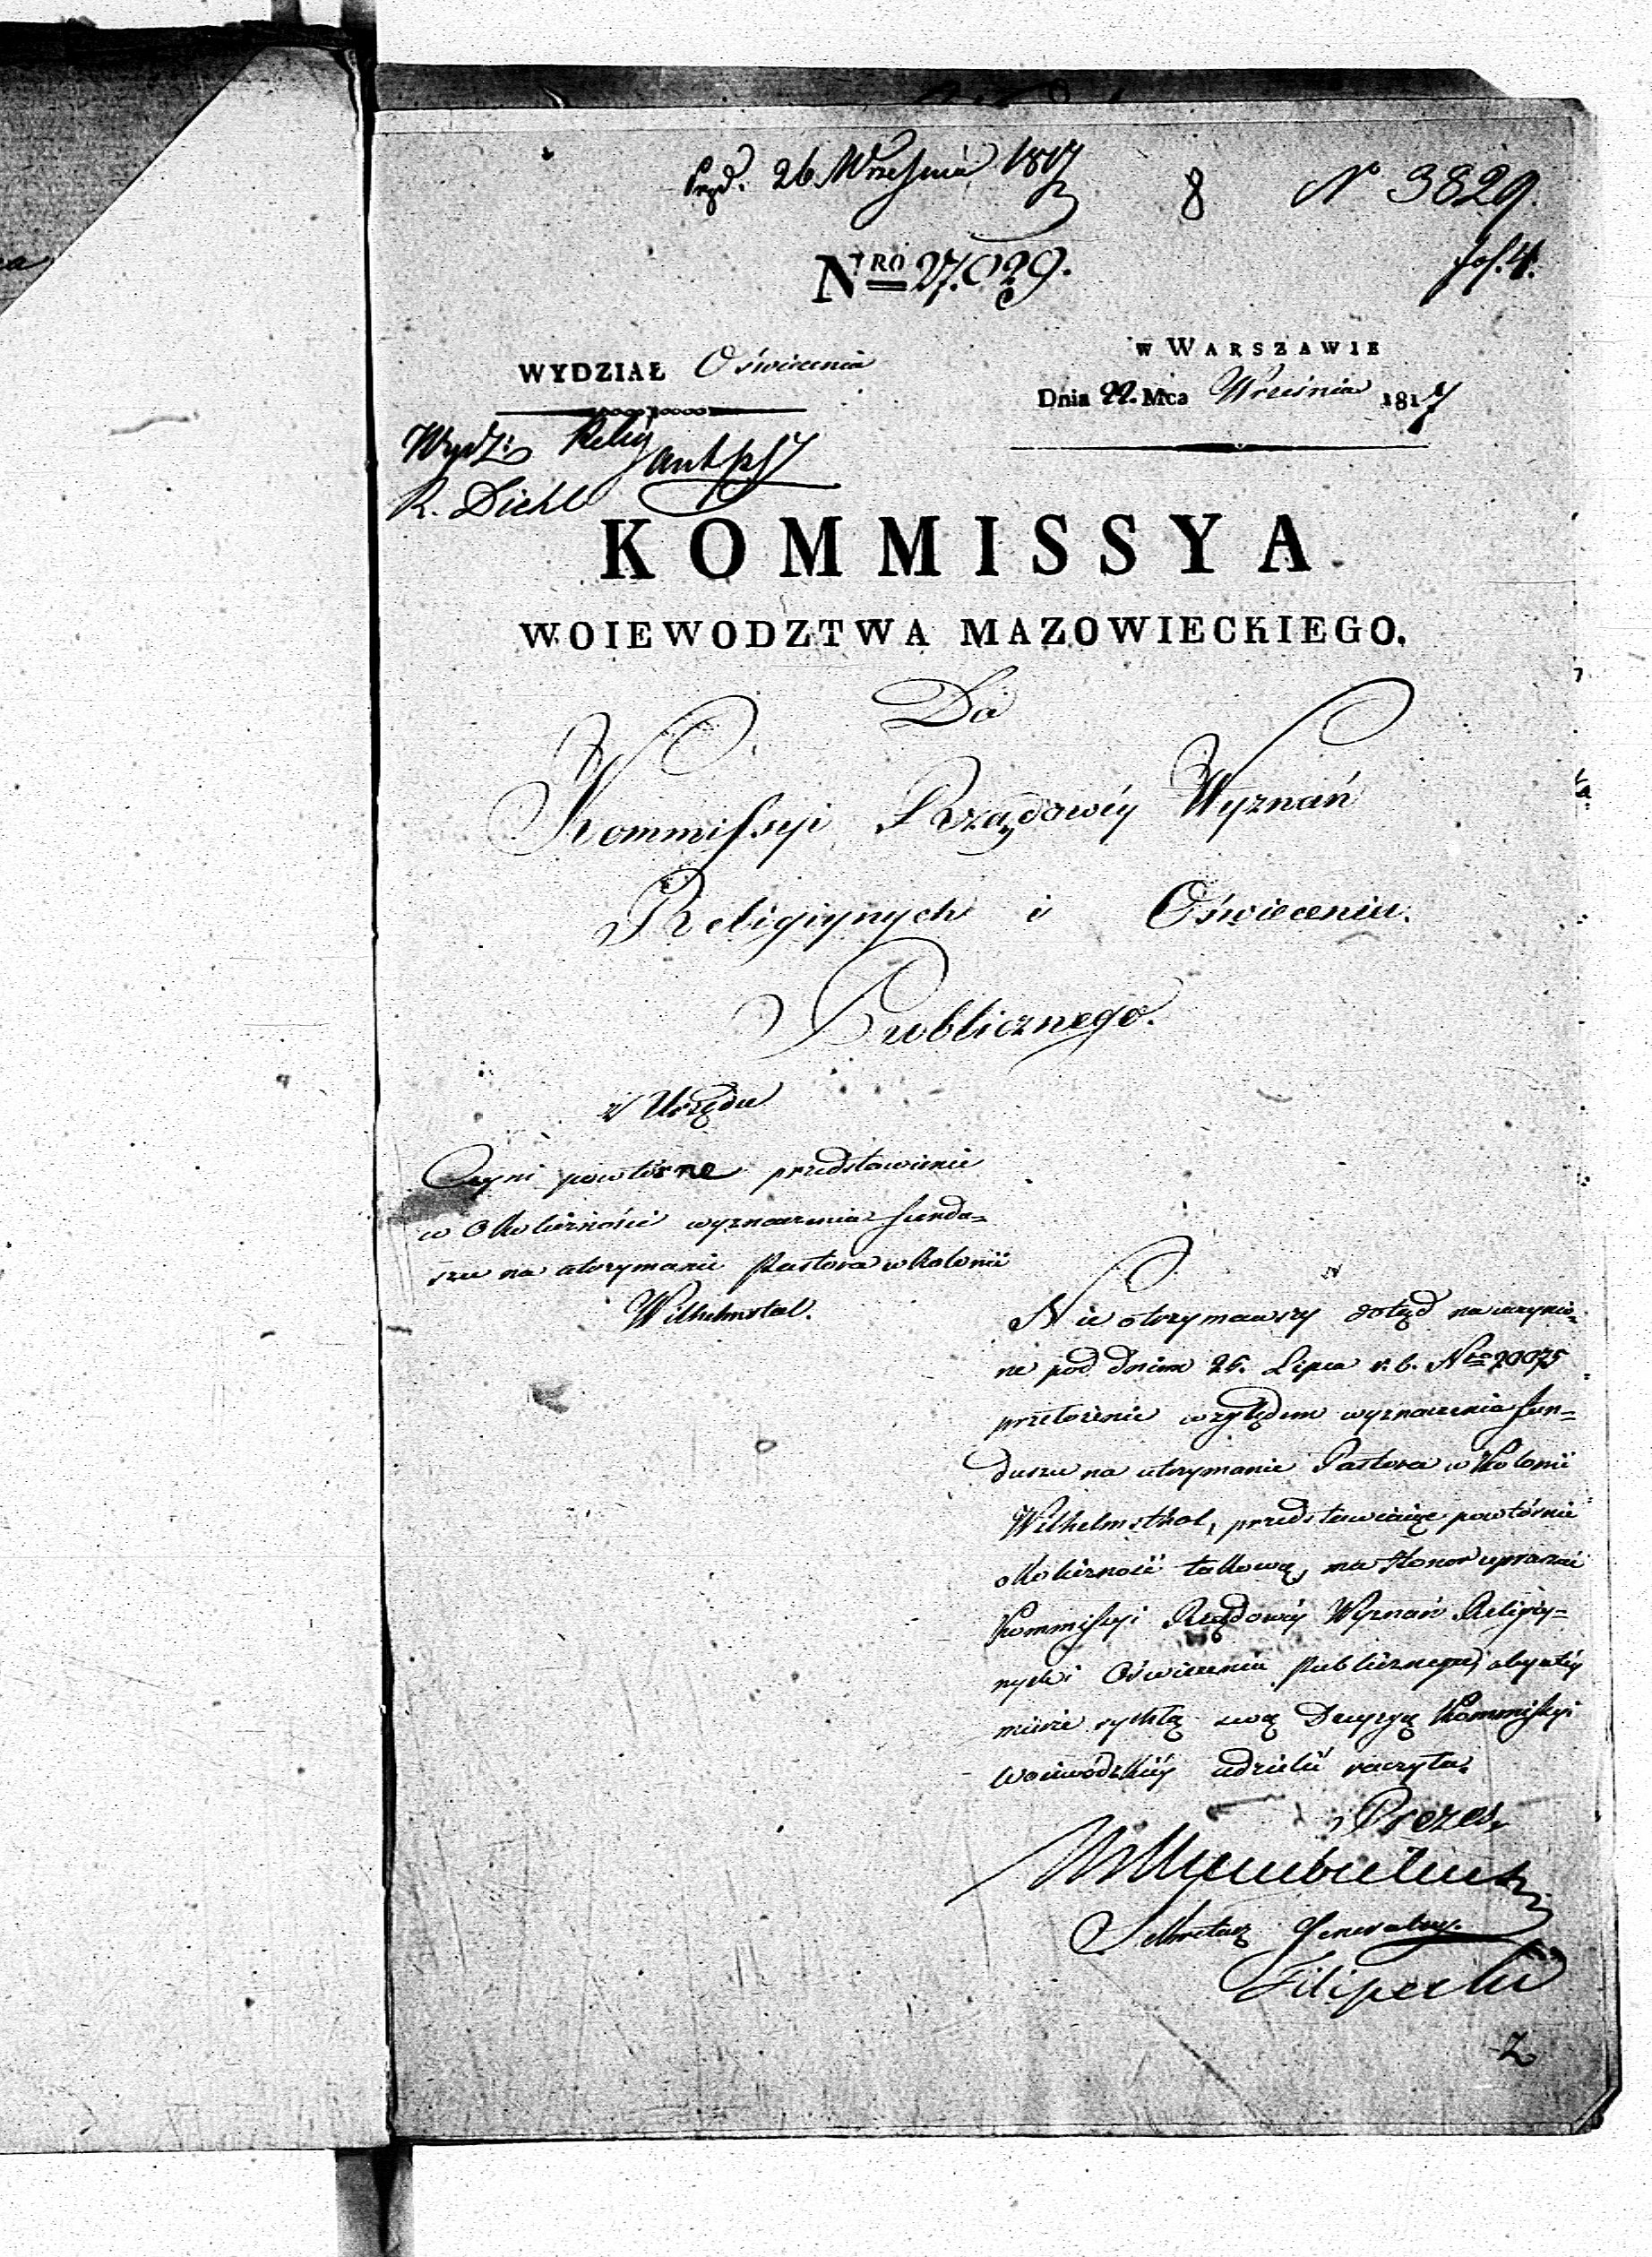 26 Września 1817
8
N 3829.
fol. 4.
NRO 27.029.
w WARSZAWIE
WYDZIAŁ Oświecenia
Dnia 22. Mca Września 1817
Wydz: Relig
R. Diehl
KOMMISSYA
WOIEWODZTWA MAZOWIECKIEGO.
Do
Kommissyi Rządowéy Wyznań
Religiynych i Oświecenia
Publicznego.
z Urzędu
Czyni powtórne przedstawienie
w okoliczności wyznaczenia fundu=
szu na utrzymanie Pastora w kolonii
Wilhelmstal.
Nie otrzymawszy dotąd na uczynio=
ne pod dniem 25. Lipca r. b. Nro 20075
przełożenie względem wyznaczenia fun=
duszu na utrzymanie Pastora w Kolonii
Wilhelmsthal, przedstawiaiąc powtórnie
okoliczność takową, ma Honor upraszać
Kommissyi Rządowéy Wyznań Religiy=
nych i Oświecenia Publicznego, aby w téy
mierze rychłą swą Decyzyą Kommissyi
Woiewódzkiéy udzielić raczyła.
Prezes
Sekretarz Generalny.
Filipecki
2